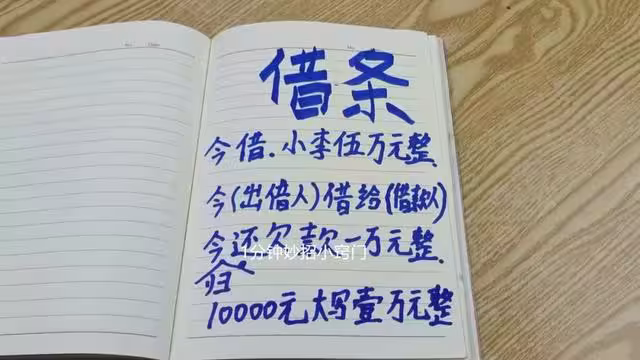 借条
今借.小李伍万元整.
今(出借人)借给(借款人)
今还欠款一万元整.
1分钟妙招小窍门
归
10000元大写壹万元整